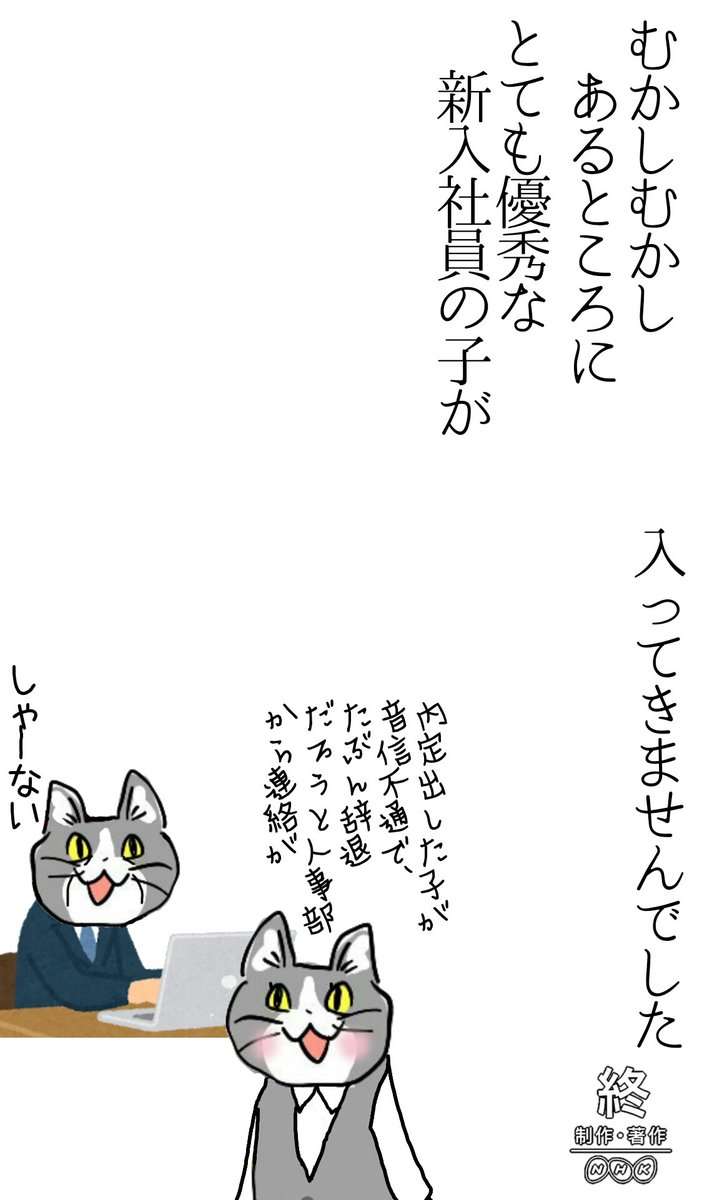 むかしむかし
あるところに
とても優秀な
新入社員の子が
入ってきませんでした
内定出した子が
音信不通で、
たぶん辞退
だろうと人事部
から連絡が
しゃーない
終
制作・著作
NHK